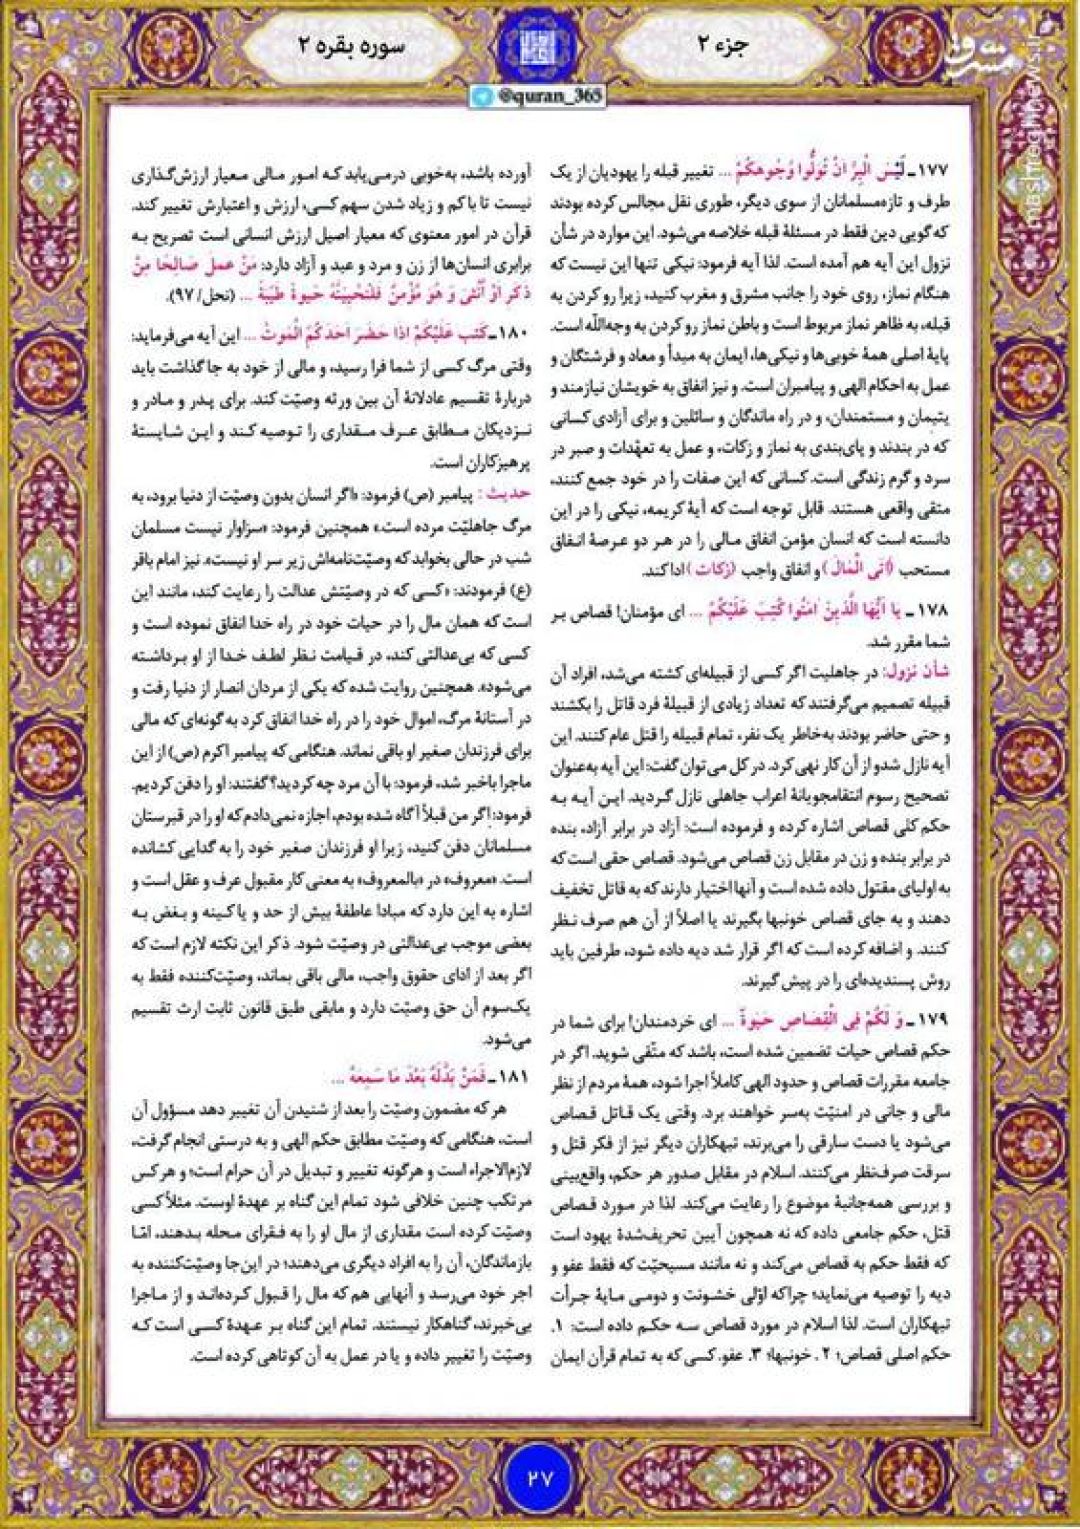 جزء ۲
سوره بقره ۲
@quran_365
مشرق
mashreghnews.ir
۱۷۷ـ لَیْسَ الْبِرَّ اَنْ تُوَلُّوا وُجُوهَکُمْ ... تغییر قبله را یهودیان از یک
طرف و تازه‌مسلمانان از سوی دیگر، طوری نقل مجالس کرده بودند
که گویی دین فقط در مسئلهٔ قبله خلاصه می‌شود. این موارد در شأن
نزول این آیه هم آمده است. لذا آیه فرمود: نیکی تنها این نیست که
هنگام نماز، روی خود را جانب مشرق و مغرب کنید، زیرا رو کردن به
قبله، به ظاهر نماز مربوط است و باطن نماز رو کردن به وجه‌اللّه است.
پایهٔ اصلی همهٔ خوبی‌ها و نیکی‌ها، ایمان به مبدأ و معاد و فرشتگان و
عمل به احکام الهی و پیامبران است. و نیز انفاق به خویشان نیازمند و
یتیمان و مستمندان، و در راه ماندگان و سائلین و برای آزادی کسانی
که در بندند و پای‌بندی به نماز و زکات، و عمل به تعهّدات و صبر در
سرد و گرم زندگی است. کسانی که این صفات را در خود جمع کنند،
متقی واقعی هستند. قابل توجه است که آیهٔ کریمه، نیکی را در این
دانسته است که انسان مؤمن انفاق مالی را در هر دو عرصهٔ انفاق
مستحب (اتَی الْمالَ) و انفاق واجب (زکات) ادا کند.
۱۷۸ـ یَا اَیُّهَا الَّذینَ امَنُوا کُتِبَ عَلَیْکُمُ ... ای مؤمنان! قصاص بر
شما مقرر شد.
شأن نزول: در جاهلیت اگر کسی از قبیله‌ای کشته می‌شد، افراد آن
قبیله تصمیم می‌گرفتند که تعداد زیادی از قبیلهٔ فرد قاتل را بکشند
و حتی حاضر بودند به‌خاطر یک نفر، تمام قبیله را قتل عام کنند. این
آیه نازل شد و از آن کار نهی کرد. در کل می‌توان گفت: این آیه به‌عنوان
تصحیح رسوم انتقامجویانهٔ اعراب جاهلی نازل گردید. این آیه به
حکم کلی قصاص اشاره کرده و فرموده است: آزاد در برابر آزاد، بنده
در برابر بنده و زن در مقابل زن قصاص می‌شود. قصاص حقی است که
به اولیای مقتول داده شده است و آنها اختیار دارند که به قاتل تخفیف
دهند و به جای قصاص خونبها بگیرند یا اصلاً از آن هم صرف نظر
کنند. و اضافه کرده است که اگر قرار شد دیه داده شود، طرفین باید
روش پسندیده‌ای را در پیش گیرند.
۱۷۹ـ وَ لَکُمْ فِی الْقِصَاصِ حَیوةٌ ... ای خردمندان! برای شما در
حکم قصاص حیات تضمین شده است، باشد که متّقی شوید. اگر در
جامعه مقررات قصاص و حدود الهی کاملاً اجرا شود، همهٔ مردم از نظر
مالی و جانی در امنیّت به‌سر خواهند برد. وقتی یک قاتل قصاص
می‌شود یا دست سارقی را می‌برند، تبهکاران دیگر نیز از فکر قتل و
سرقت صرف‌نظر می‌کنند. اسلام در مقابل صدور هر حکم، واقع‌بینی
و بررسی همه‌جانبهٔ موضوع را رعایت می‌کند. لذا در مورد قصاص
قتل، حکم جامعی داده که نه همچون آیین تحریف‌شدهٔ یهود است
که فقط حکم به قصاص می‌کند و نه مانند مسیحیّت که فقط عفو و
دیه را توصیه می‌نماید؛ چراکه اوّلی خشونت و دومی مایهٔ جرأت
تبهکاران است. لذا اسلام در مورد قصاص سه حکم داده است: ۱.
حکم اصلی قصاص؛ ۲. خونبها؛ ۳. عفو. کسی که به تمام قرآن ایمان
آورده باشد، به‌خوبی درمی‌یابد که امور مالی معیار ارزش‌گذاری
نیست تا با کم و زیاد شدن سهم کسی، ارزش و اعتبارش تغییر کند.
قرآن در امور معنوی که معیار اصیل ارزش انسانی است تصریح به
برابری انسان‌ها از زن و مرد و عبد و آزاد دارد: مَنْ عَمِلَ صَالِحًا مِنْ
ذَکَرٍ اَوْ اُنْثی وَ هُوَ مُؤْمِنٌ فَلَنُحْیِیَنَّهُ حَیوةً طَیِّبَةً ... (نحل/ ۹۷).
۱۸۰ـ کُتِبَ عَلَیْکُمْ اِذَا حَضَرَ اَحَدَکُمُ الْمَوْتُ ... این آیه می‌فرماید:
وقتی مرگ کسی از شما فرا رسید، و مالی از خود به جا گذاشت باید
دربارهٔ تقسیم عادلانهٔ آن بین ورثه وصیّت کند. برای پدر و مادر و
نزدیکان مطابق عرف مقداری را توصیه کند و این شایستهٔ
پرهیزکاران است.
حدیث: پیامبر (ص) فرمود: «اگر انسان بدون وصیّت از دنیا برود، به
مرگ جاهلیّت مرده است.» همچنین فرمود: «سزاوار نیست مسلمان
شب در حالی بخوابد که وصیّت‌نامه‌اش زیر سر او نیست». نیز امام باقر
(ع) فرمودند: «کسی که در وصیّتش عدالت را رعایت کند، مانند این
است که همان مال را در حیات خود در راه خدا انفاق نموده است و
کسی که بی‌عدالتی کند، در قیامت نظر لطف خدا از او برداشته
می‌شود». همچنین روایت شده که یکی از مردان انصار از دنیا رفت و
در آستانهٔ مرگ، اموال خود را در راه خدا انفاق کرد به گونه‌ای که مالی
برای فرزندان صغیر او باقی نماند. هنگامی که پیامبر اکرم (ص) از این
ماجرا باخبر شد، فرمود: با آن مرد چه کردید؟ گفتند: او را دفن کردیم.
فرمود: اگر من قبلاً آگاه شده بودم، اجازه نمی‌دادم که او را در قبرستان
مسلمانان دفن کنید، زیرا او فرزندان صغیر خود را به گدایی کشانده
است. «معروف» در «بالمعروف» به معنی کار مقبول عرف و عقل است و
اشاره به این دارد که مبادا عاطفهٔ بیش از حد و یا کینه و بغض به
بعضی موجب بی‌عدالتی در وصیّت شود. ذکر این نکته لازم است که
اگر بعد از ادای حقوق واجب، مالی باقی بماند، وصیّت‌کننده فقط به
یک‌سوم آن حق وصیّت دارد و مابقی طبق قانون ثابت ارث تقسیم
می‌شود.
۱۸۱ـ فَمَنْ بَدَّلَهُ بَعْدَ مَا سَمِعَهُ ...
هر که مضمون وصیّت را بعد از شنیدن آن تغییر دهد مسؤول آن
است، هنگامی که وصیّت مطابق حکم الهی و به درستی انجام گرفت،
لازم‌الاجراء است و هرگونه تغییر و تبدیل در آن حرام است؛ و هر کس
مرتکب چنین خلافی شود تمام این گناه بر عهدهٔ اوست. مثلاً کسی
وصیّت کرده است مقداری از مال او را به فقرای محله بدهند، امّا
بازماندگان، آن را به افراد دیگری می‌دهند؛ در این‌جا وصیّت‌کننده به
اجر خود می‌رسد و آنهایی هم که مال را قبول کرده‌اند و از ماجرا
بی‌خبرند، گناهکار نیستند. تمام این گناه بر عهدهٔ کسی است که
وصیّت را تغییر داده و یا در عمل به آن کوتاهی کرده است.
۲۷